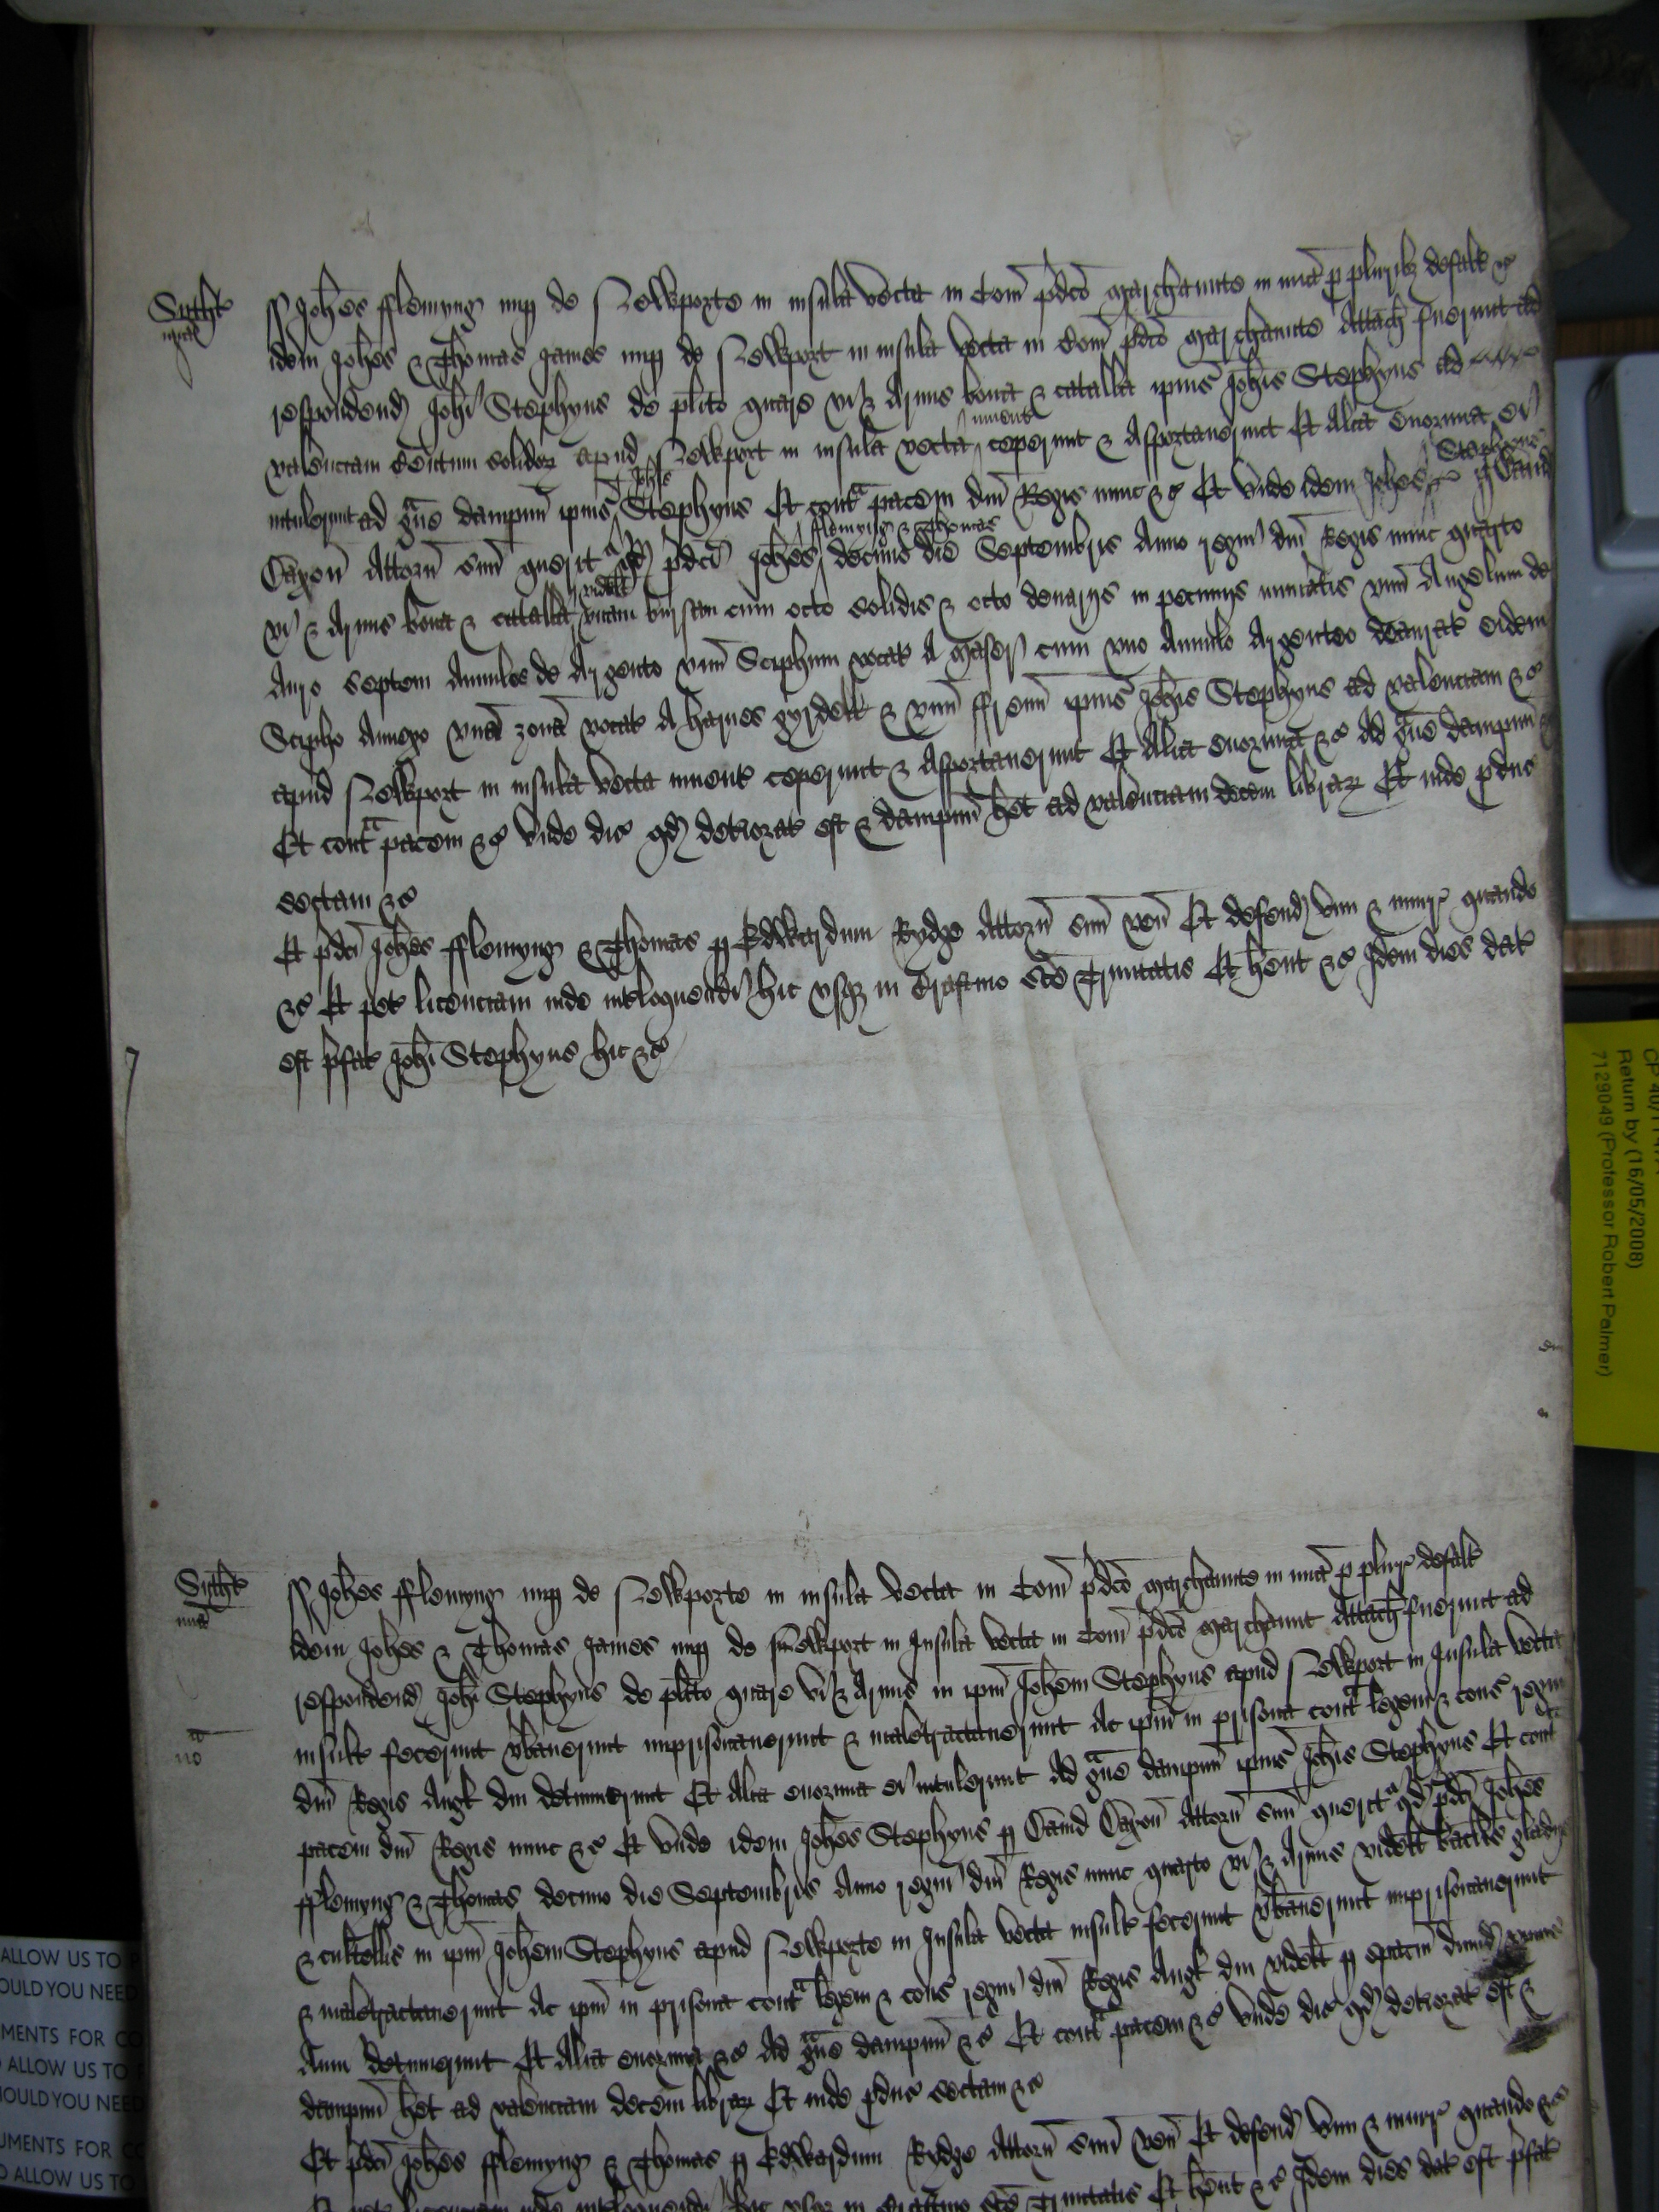 Sutht
mia
ss Johes fflemyng nup de Newporte in insula vecta in Com pdco marchaunte in mia p plurib defalt &c
idem Johes & Thomas James nup de Newport in insula vecta in Com pdco marchaunte Attach fuerunt ad
respondend Johi Stephyns de plito quare vi & Armis bona & catalla ipius Johis Stephyns ad
invent
valenciam Centum solidor apud Newport in insula vecta ceperunt & Asportaverunt Et Alia enormia ei
Johis Stephyns
intulerunt ad gave dampnu ipius Stephyns Et contra pacem dni Regis nunc &c Et unde idem Johes p David
fflemyng & Thomas
Caxon Attorn suu querit qd pdci Johes decimo die Septembris Anno regni dni Regis nunc quarto
videlt
vi & Armis bona & catalla unam bursam cum octo solidis & octo denariis in pecuniis numatis unu Angelum de
Auro septem Annulos de Argento unu Sciphum vocat A Maser cum uno Annulo Argenteo deaurat eidem
Scipho Annexo una zona vocat A harnes gyrdell & unu ffrenu ipius Johis Stephyns ad valenciam &c
apud Newport in insula vecta invent ceperunt & Asportaverunt Et Alia enormia &c Ad gave dampnu &c
Et contra pacem &c unde dic qd deteriorat est & dampnu het ad valenciam decem librar Et inde pduc
sectam &c
Et pdci Johes fflemyng & Thomas p Edwardum Rydge Attorn suu ven Et defend vim & iniur quando
&c Et pet licenciam inde intloquendi hic usq in Crastino sce Trinitatis Et hent &c Idem dies dat
est pfat Johi Stephyns hic &c
Sutht
mia
ss Johes fflemyng nup de Newporte in insula vecta in Com pdco marchaunte in mia p plur defalt
Idem Johes & Thomas James nup de Newport in Insula vecta in Com pdco marchaunt Attach fuerunt ad
respondend Johi Stephyns de plito quare vi & Armis in ipm Johem Stephyns apud Newport in Insula vecta
insult fecerunt vbaverunt imprisonaverunt & maletractaverunt Ac ipm in prisona contra legem & cons regni
dni Regis Angl diu detinuerunt Et Alia enormia ei intulerunt Ad gave dampnu ipius Johis Stephyns Et contra
pacem dni Regis nunc &c Et unde idem Johes Stephyns p David Caxon Attorn suu querit qd pdci Johes
fflemyng & Thomas decimo die Septembris Anno regni dni Regis nunc quarto vi & Armis videlt baclis gladiis
& cultellis in ipm Johem Stephyns apud Newporte in Insula vecta insult fecerunt vbaverunt imprisonaverunt
& maletractaverunt Ac ipm in prisona contra legem & cons regni dni Regis Angl diu videlt p spaciu dimid unius
Anni detinuerunt Et Alia enormia &c Ad gave dampnu &c Et contra pacem &c unde dic qd deteriorat est &
dampnu het ad valenciam decem librar Et inde pduc sectam &c
Et pdci Johes fflemyng & Thomas p Edwardum Rydge Attorn suu ven Et defend vim & iniur quando &c
Et pet licenciam inde intloquendi hic usq in Crastino sce Trinitatis Et hent &c Idem dies dat est pfat
Return by (16/05/2008)
7129049 (Professor Robert Palmer)
ALLOW US TO
OULD YOU NEED
MENTS FOR CO
ALLOW US TO
HOULD YOU NEED
UMENTS FOR CO
ALLOW US TO